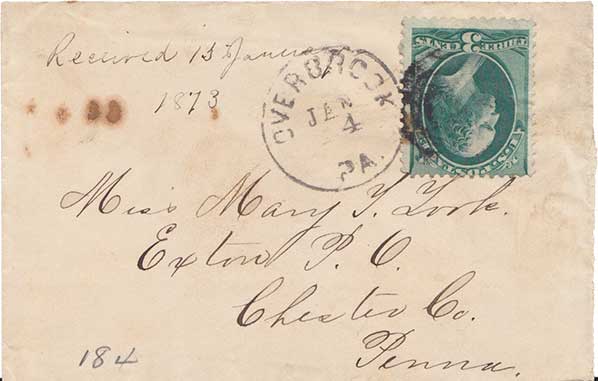 Received 15 Janua
1873
OVERBROOK
JAN
4
PA.
3
Miss Mary Y. Zook.
Exton P. O.
Chester Co.
Penna.
184